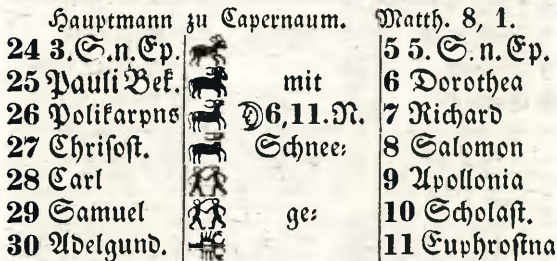 Hauptmann zu Capernaum. Matth. 8, 1.
24 3.S.n.Ep. 5 5.S.n.Ep.
25 Pauli Bek. mit 6 Dorothea
26 Polikarpns ☽6,11.N. 7 Richard
27 Chrisost. Schnee= 8 Salomon
28 Carl 9 Apollonia
29 Samuel ge= 10 Scholast.
30 Adelgund. 11 Euphrostna